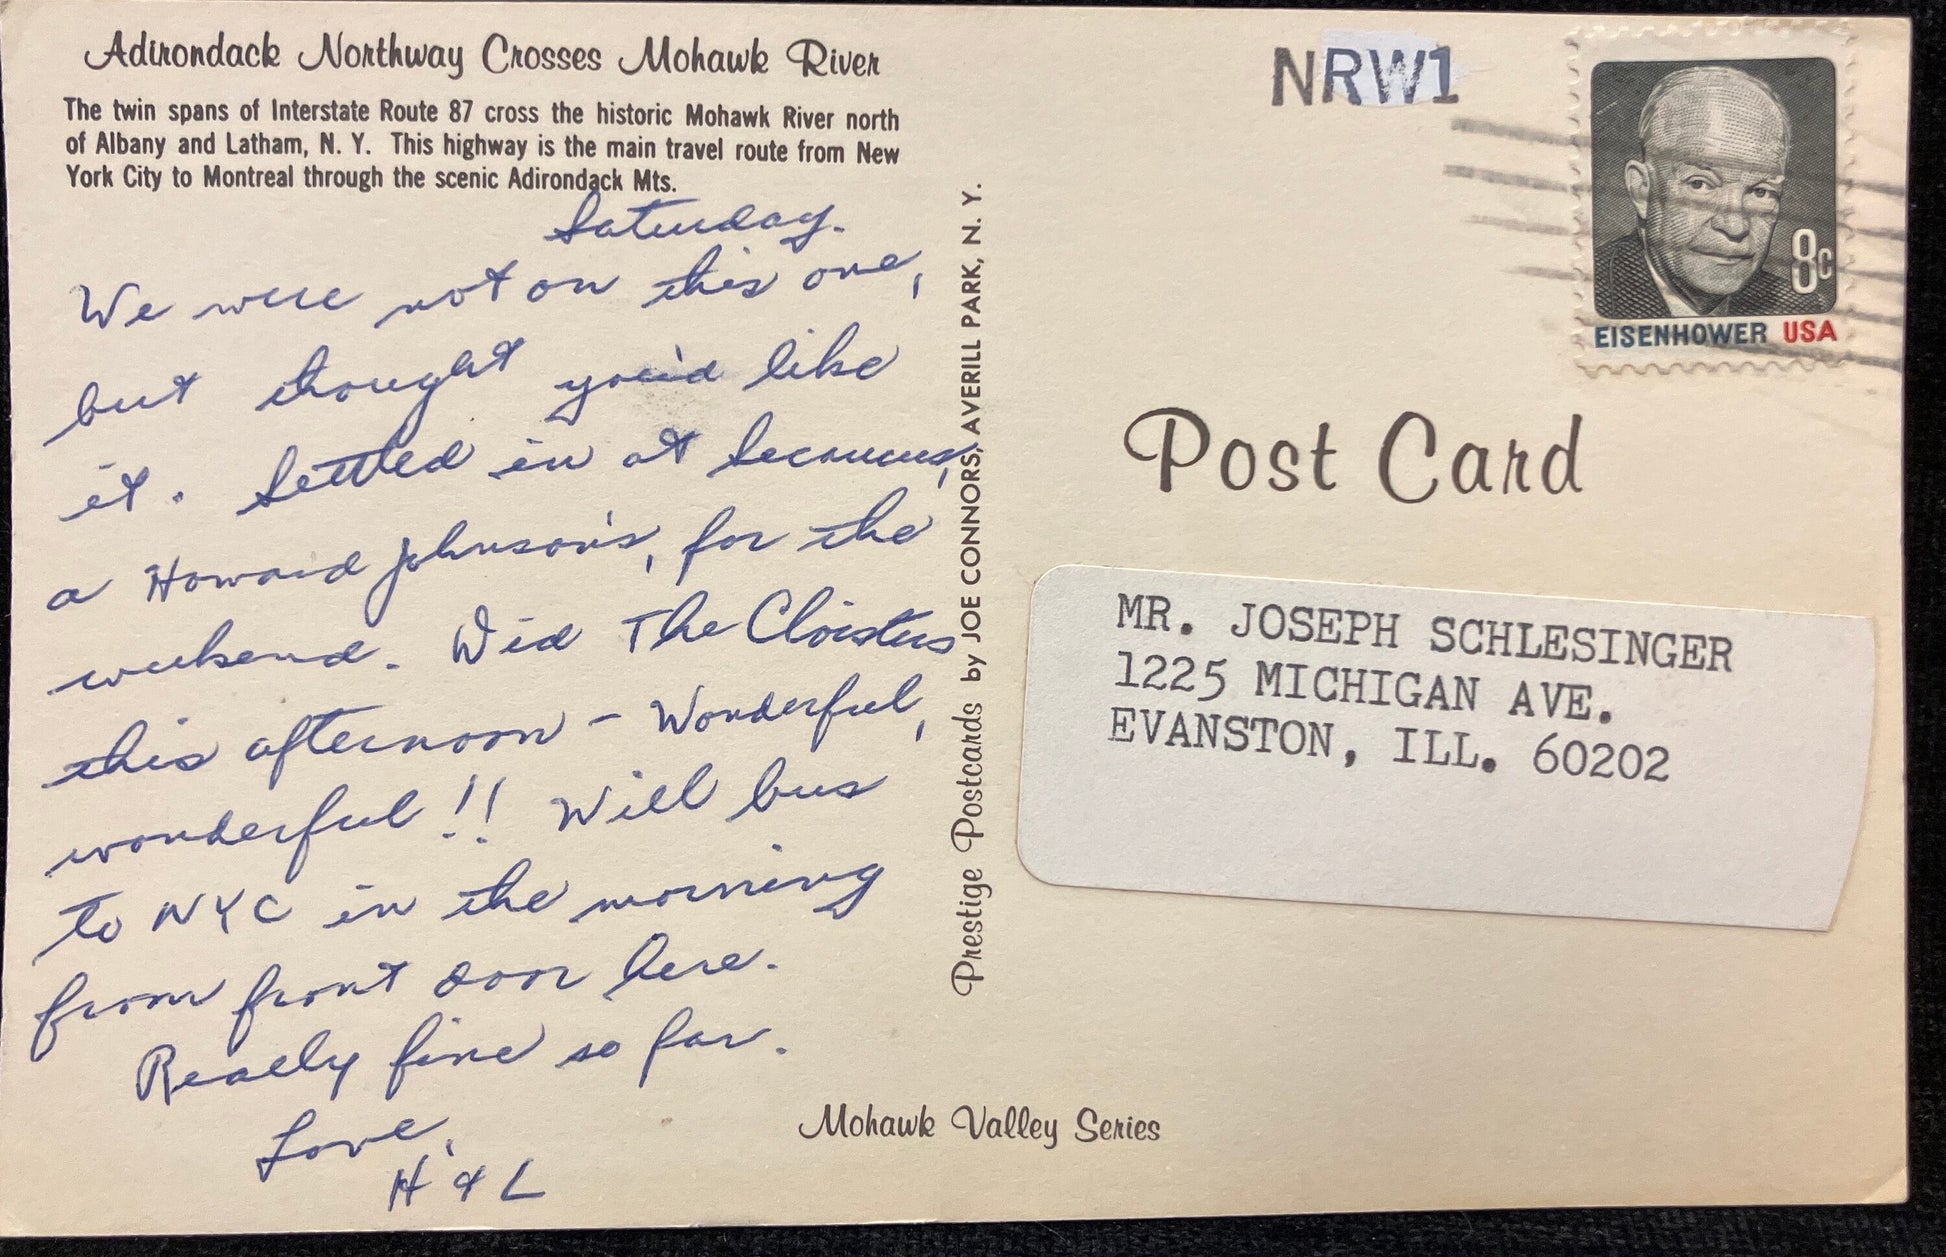 Adirondack Northway Crosses Mohawk River
The twin spans of Interstate Route 87 cross the historic Mohawk River north
of Albany and Latham, N. Y. This highway is the main travel route from New
York City to Montreal through the scenic Adirondack Mts.
Saturday.
We were not on this one,
but thought you'd like
it. Settled in at Secaucus,
a Howard Johnson's, for the
weekend. Did The Cloisters
this afternoon - Wonderful,
wonderful!! Will bus
to NYC in the morning
from front door here.
Really fine so far.
Love,
H & L
Prestige Postcards by JOE CONNORS, AVERILL PARK, N. Y.
NRW1
8c
EISENHOWER USA
Post Card
MR. JOSEPH SCHLESINGER
1225 MICHIGAN AVE.
EVANSTON, ILL. 60202
Mohawk Valley Series